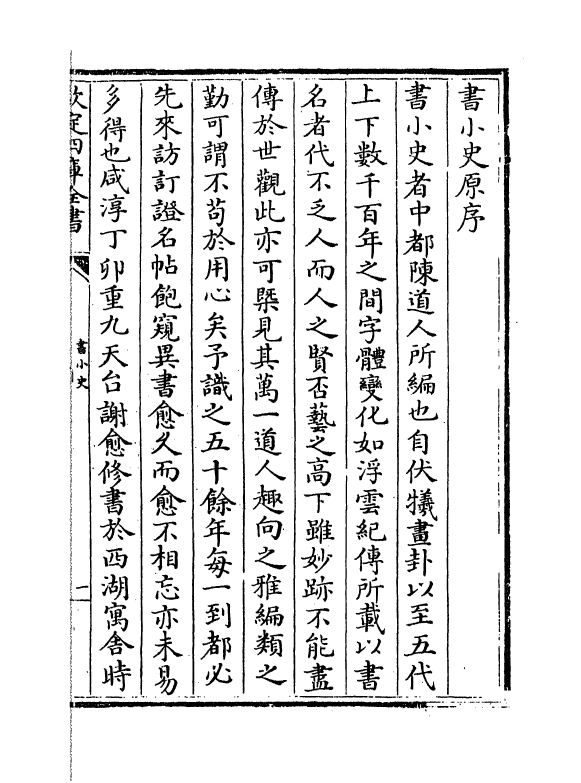 書小史原序
書小史者中都陳道人所編也自伏犧畫卦以至五代
上下數千百年之間字體變化如浮雲紀傳所載以書
名者代不乏人而人之賢否藝之高下雖妙跡不能盡
傳於世觀此亦可槩見其萬一道人趣向之雅編類之
勤可謂不苟於用心矣予識之五十餘年每一到都必
先來訪訂證名帖飽窺異書愈久而愈不相忘亦未易
多得也咸淳丁卯重九天台謝愈修書於西湖寓舍時
欽定四庫全書
書小史
一